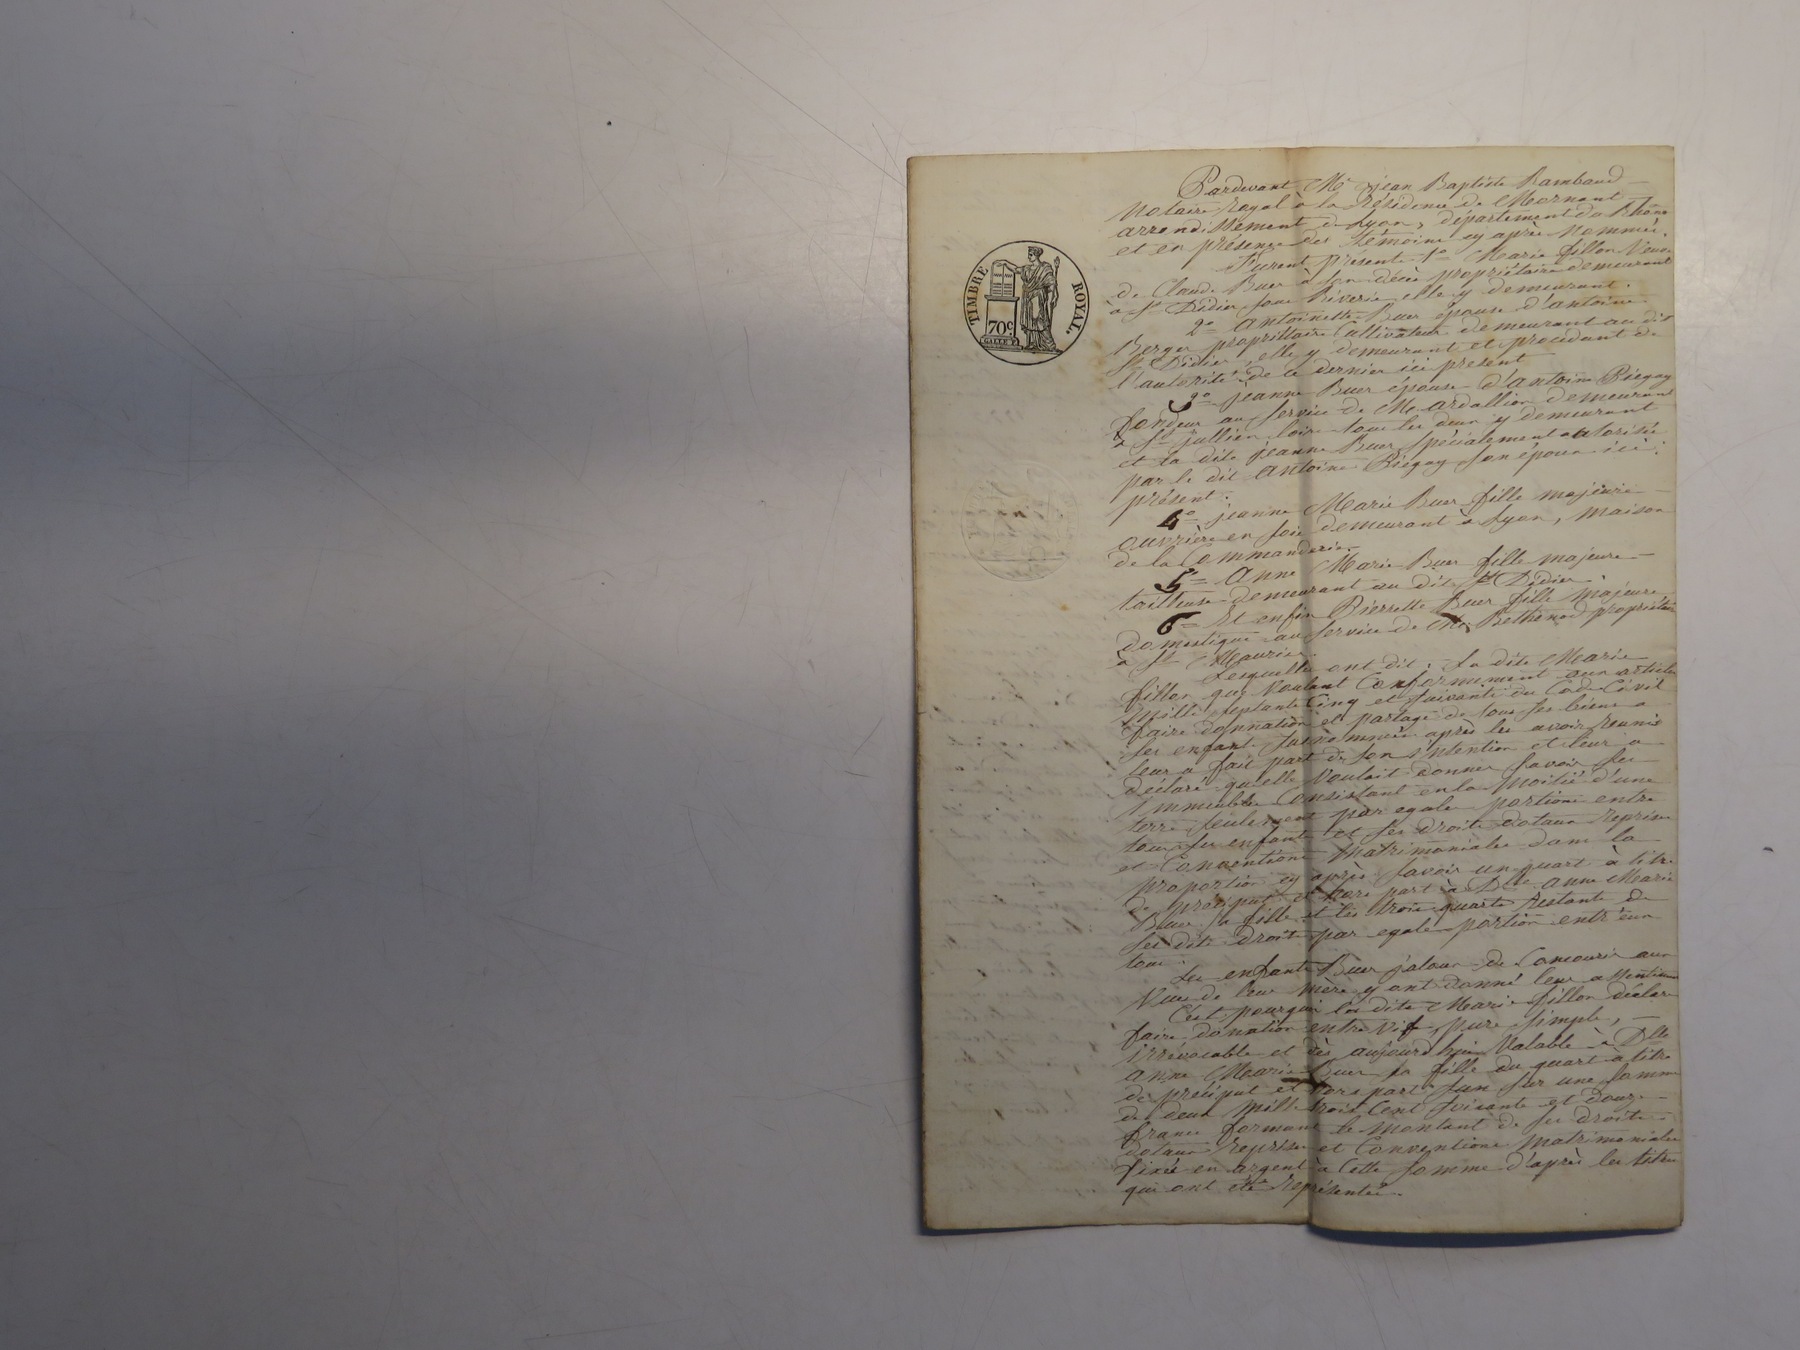 TIMBRE ROYAL.
70c.
Pardevant Me jean Baptiste Rambaud
Notaire royal à la Résidence de Mornant
arrondissement de Lyon, département du Rhône
et en présence des témoins cy après nommés.
Furent présents 1° Marie fillon Veuve
de Claude Buer à son décès propriétaire demeurant
à St Didier sous Riverie elle y demeurant.
2° Antoinette Buer épouse d'antoine
Berger propriétaire Cultivateur demeurant au dit
St Didier, elle y demeurant et procédant de
l'autorité de ce dernier ici présent
3° jeanne Buer épouse d'antoine Piegay
fondeur au service de Mr ardaillion demeurant
à St jullien loire tous les deux y demeurant
et la dite jeanne Buer spécialement autorisée
par le dit Antoine Piegay son époux ici
présent.
4° jeanne Marie Buer fille majeure
ouvrière en soie demeurant à Lyon, maison
de la Commanderie.
5° Anne Marie Buer fille majeure
tailleuse demeurant au dit St Didier.
6° Et enfin Pierrette Buer fille majeure
domestique au service de Mr Bethenod propriétaire
à St Maurice.
Lesquelles ont dit : la dite Marie
fillon que voulant Conformément aux articles
Mille septante Cinq et suivants du Code Civil
faire donnation et partage de tous ses biens a
ses enfants susnommés après les avoir reunis
leur a fait part de son intention et leur a
déclaré qu'elle voulait donner savoir ses
immeubles Consistant en la moitié d'une
terre seulement par egales portions entre
tous ses enfants et ses droits dotaux reprises
et Conventions Matrimoniales dans la
proportion cy après savoir un quart à titre
de préciput et hors part à Dlle anne Marie
Buer sa fille et les trois quarts restants de
ses dits droits par egale portion entr'eux
tous.
Les enfants Buer jaloux de Concourir aux
Vues de leur mère y ont donné leur assentiment
C'est pourquoi la dite Marie fillon déclare
faire donation entre vifs, pure simple,
irrévocable et dès aujourd'hui Valable à Dlle
anne Marie Buer sa fille du quart à titre
de préciput et hors part sur une somme
de deux mille trois Cent soixante et douze
francs formant le montant de ses droits
dotaux reprises et Conventions Matrimoniales
fixés en argent à Cette somme d'après les titres
qui ont été représentés.